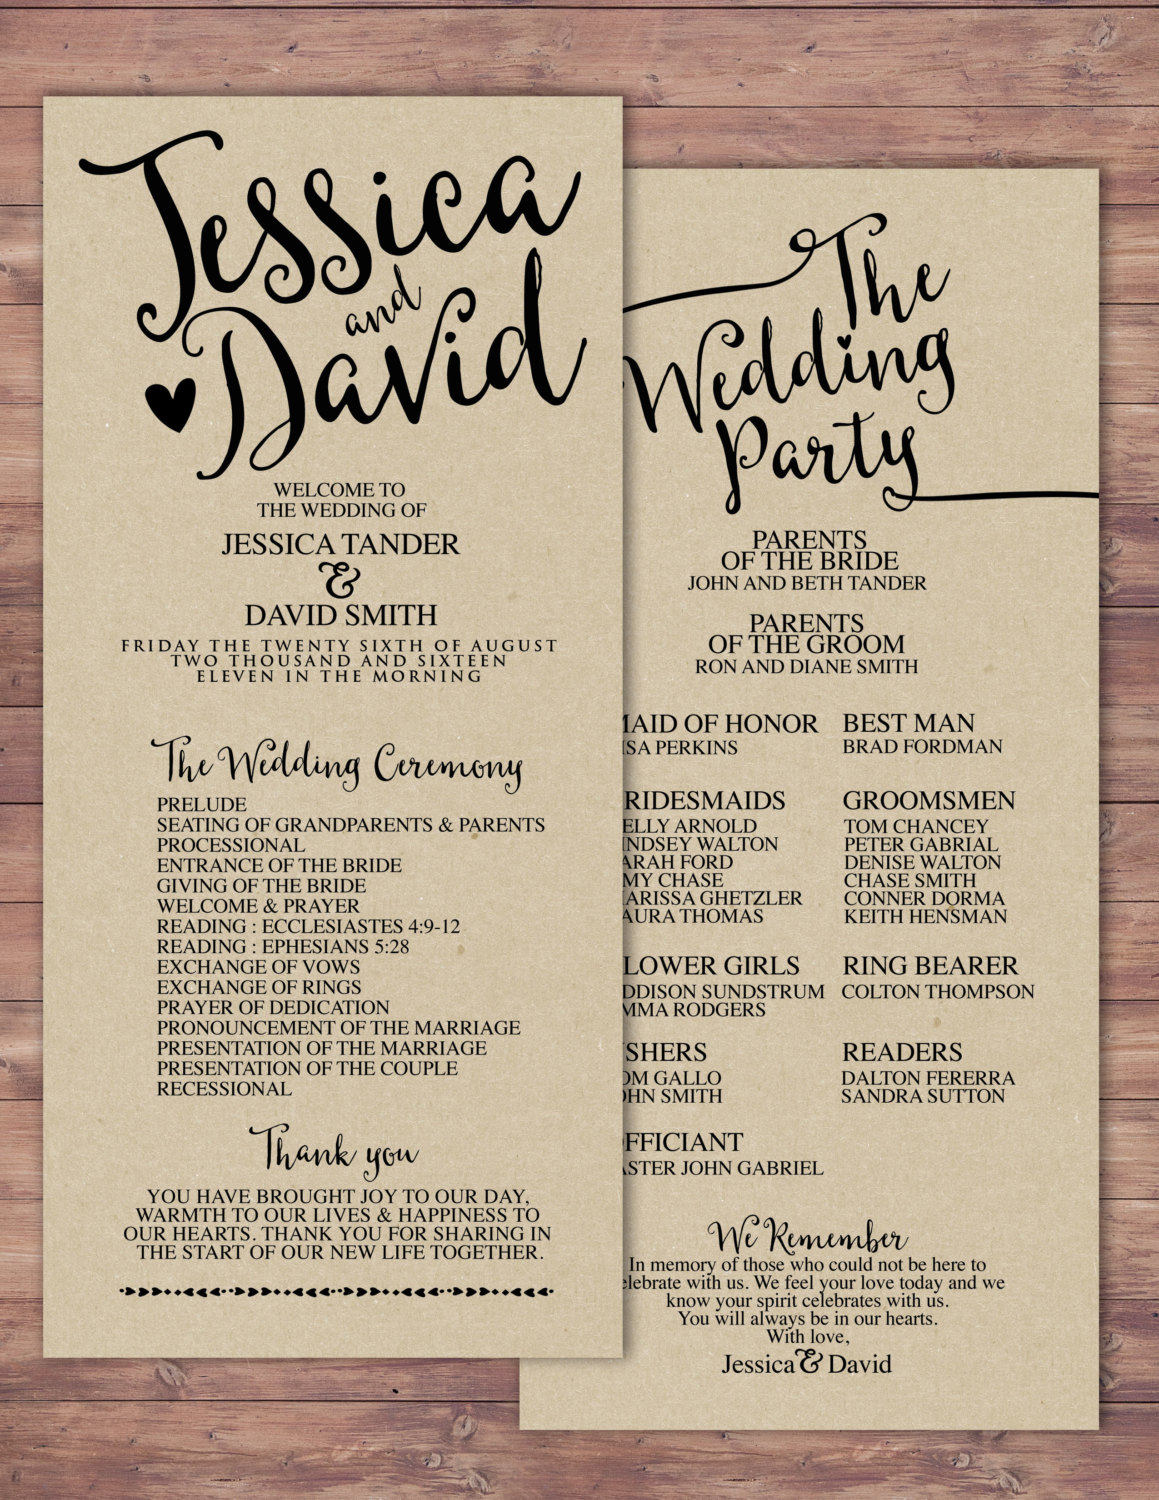 Jessica
and
David
WELCOME TO
THE WEDDING OF
JESSICA TANDER
&
DAVID SMITH
FRIDAY THE TWENTY SIXTH OF AUGUST
TWO THOUSAND AND SIXTEEN
ELEVEN IN THE MORNING
The Wedding Ceremony
PRELUDE
SEATING OF GRANDPARENTS & PARENTS
PROCESSIONAL
ENTRANCE OF THE BRIDE
GIVING OF THE BRIDE
WELCOME & PRAYER
READING : ECCLESIASTES 4:9-12
READING : EPHESIANS 5:28
EXCHANGE OF VOWS
EXCHANGE OF RINGS
PRAYER OF DEDICATION
PRONOUNCEMENT OF THE MARRIAGE
PRESENTATION OF THE MARRIAGE
PRESENTATION OF THE COUPLE
RECESSIONAL
Thank you
YOU HAVE BROUGHT JOY TO OUR DAY,
WARMTH TO OUR LIVES & HAPPINESS TO
OUR HEARTS. THANK YOU FOR SHARING IN
THE START OF OUR NEW LIFE TOGETHER.
The
Wedding
Party
PARENTS
OF THE BRIDE
JOHN AND BETH TANDER
PARENTS
OF THE GROOM
RON AND DIANE SMITH
OF HONOR
PERKINS
BEST MAN
BRAD FORDMAN
ARNOLD
WALTON
FORD
CHASE
GHETZLER
THOMAS
GROOMSMEN
TOM CHANCEY
PETER GABRIAL
DENISE WALTON
CHASE SMITH
CONNER DORMA
KEITH HENSMAN
GIRLS
SUNDSTRUM
RODGERS
RING BEARER
COLTON THOMPSON
GALLO
SMITH
READERS
DALTON FERERRA
SANDRA SUTTON
JOHN GABRIEL
We Remember
In memory of those who could not be here to
with us. We feel your love today and we
know your spirit celebrates with us.
You will always be in our hearts.
With love,
Jessica & David